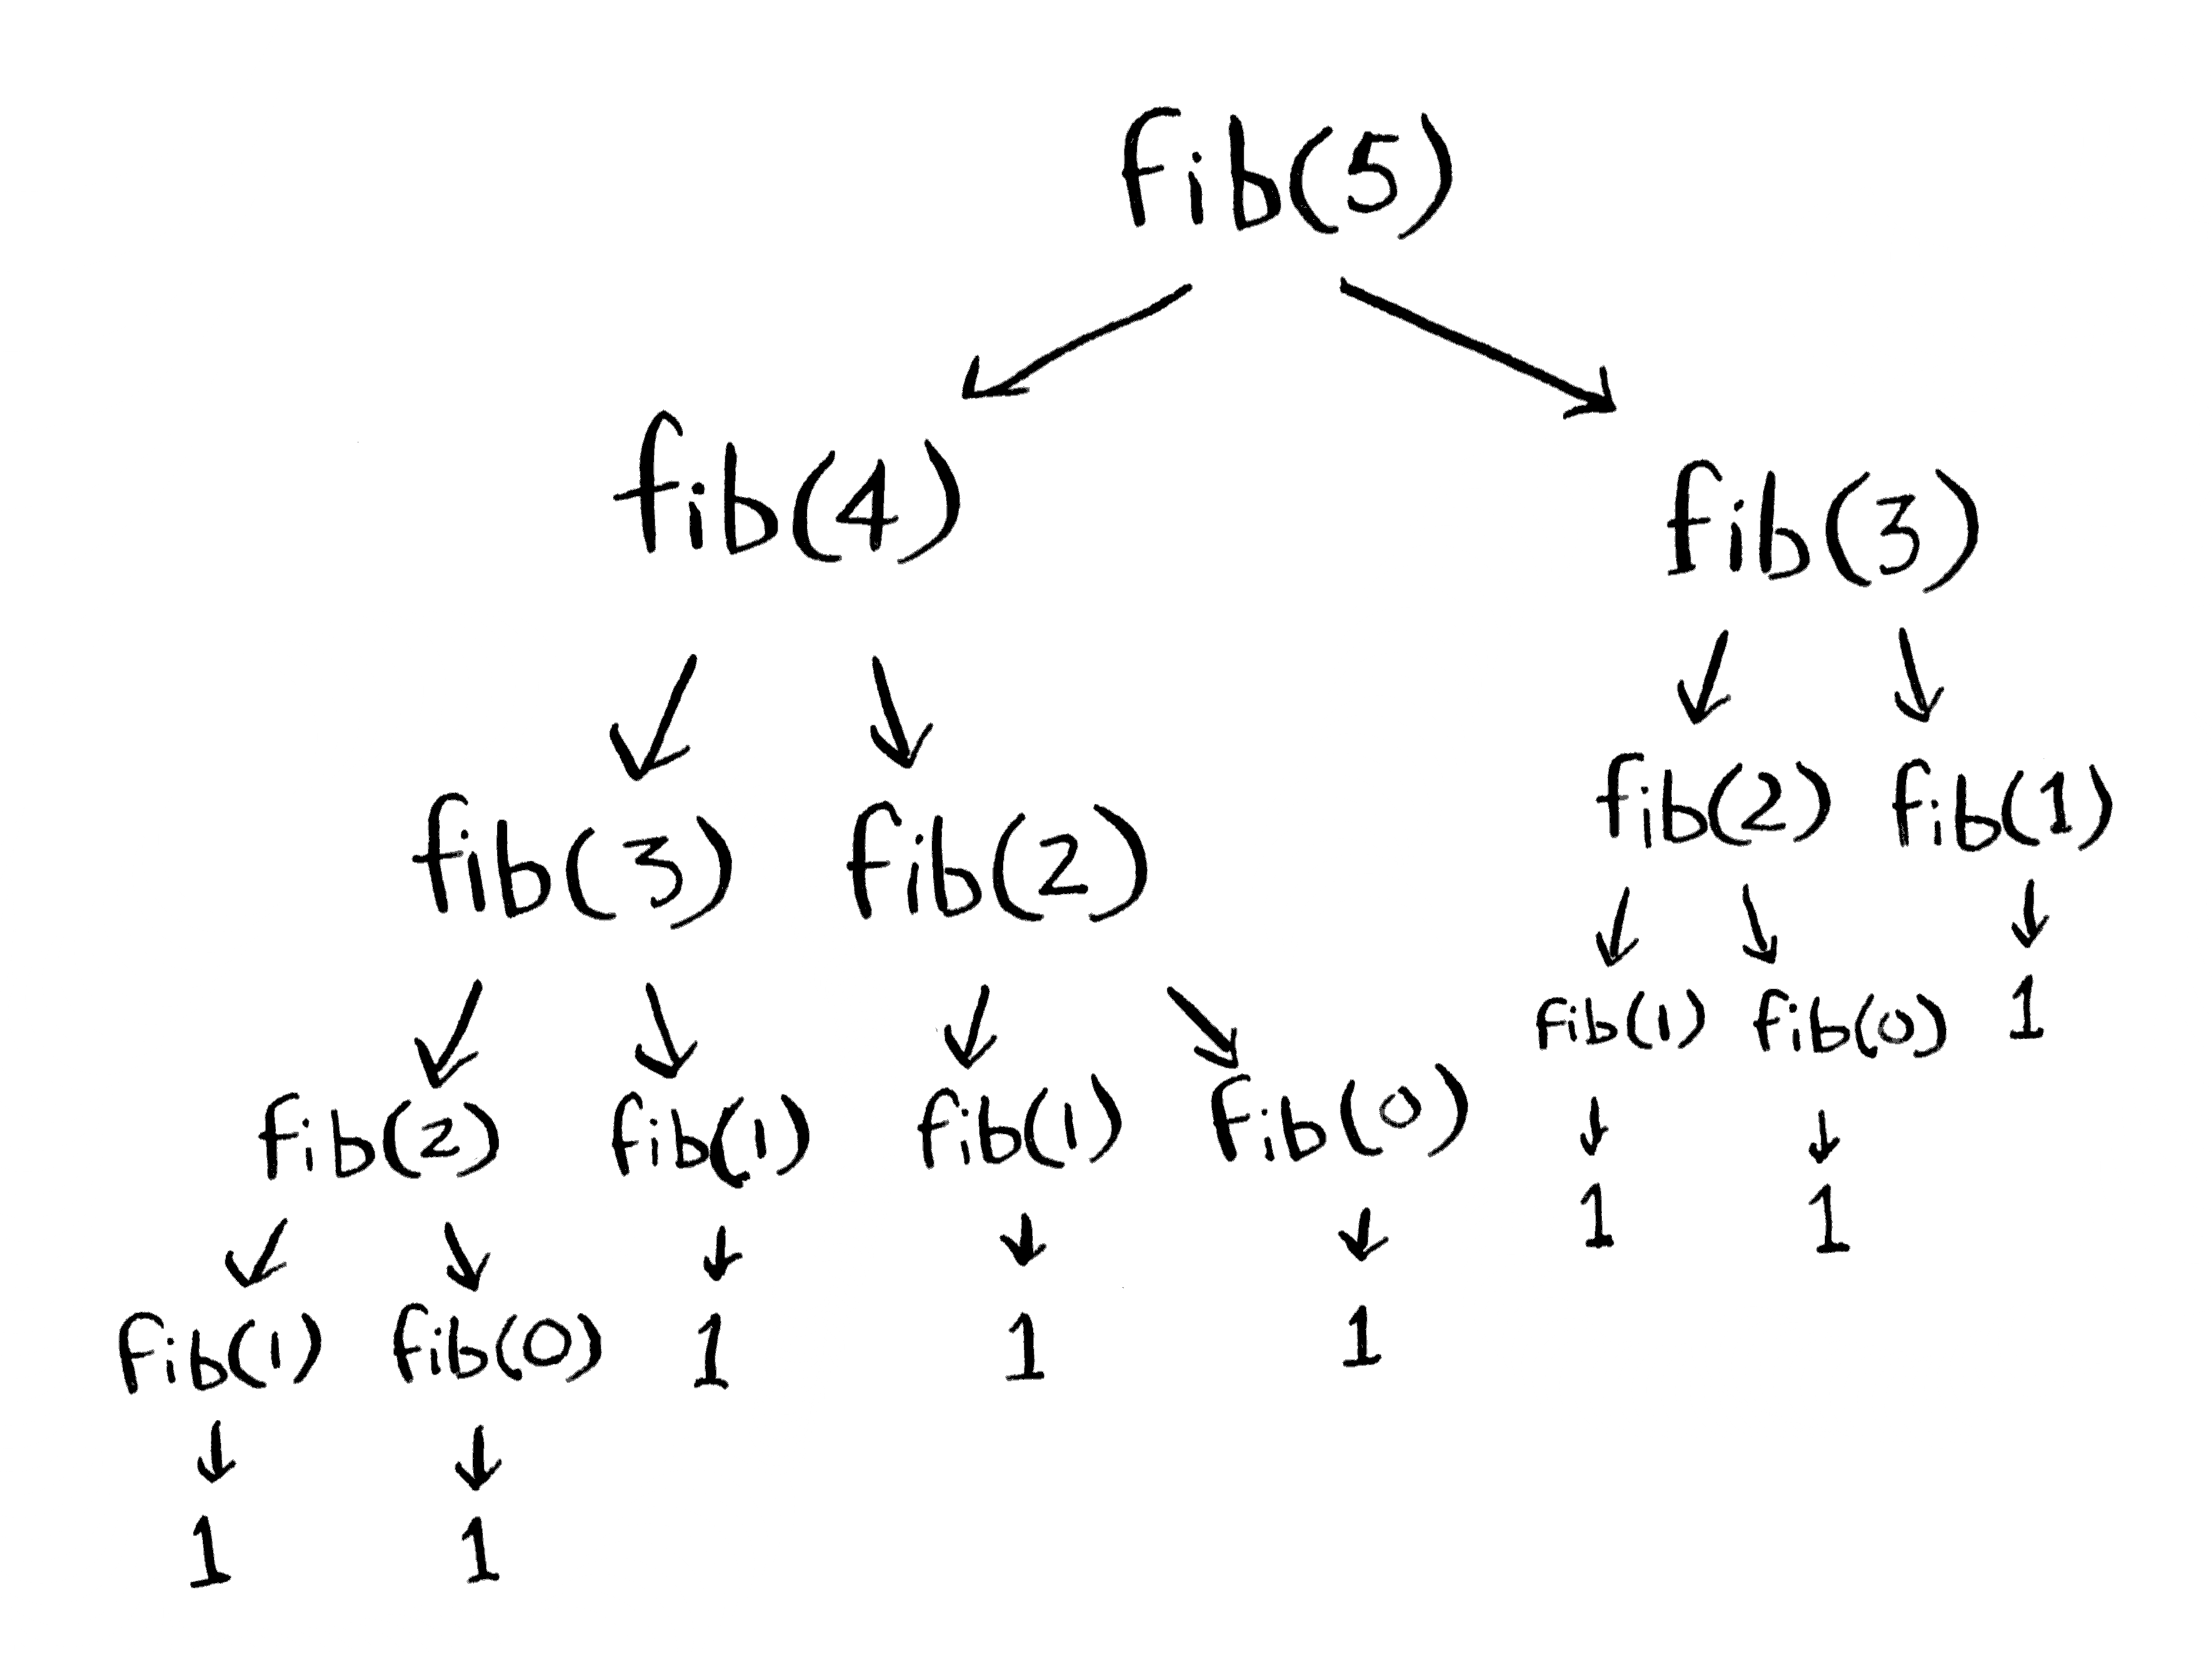 fib(5)
fib(4) fib(3)
fib(3) fib(2) fib(2) fib(1)
fib(2) fib(1) fib(1) fib(0) fib(1) fib(0) 1
fib(1) fib(0) 1 1 1 1 1
1 1